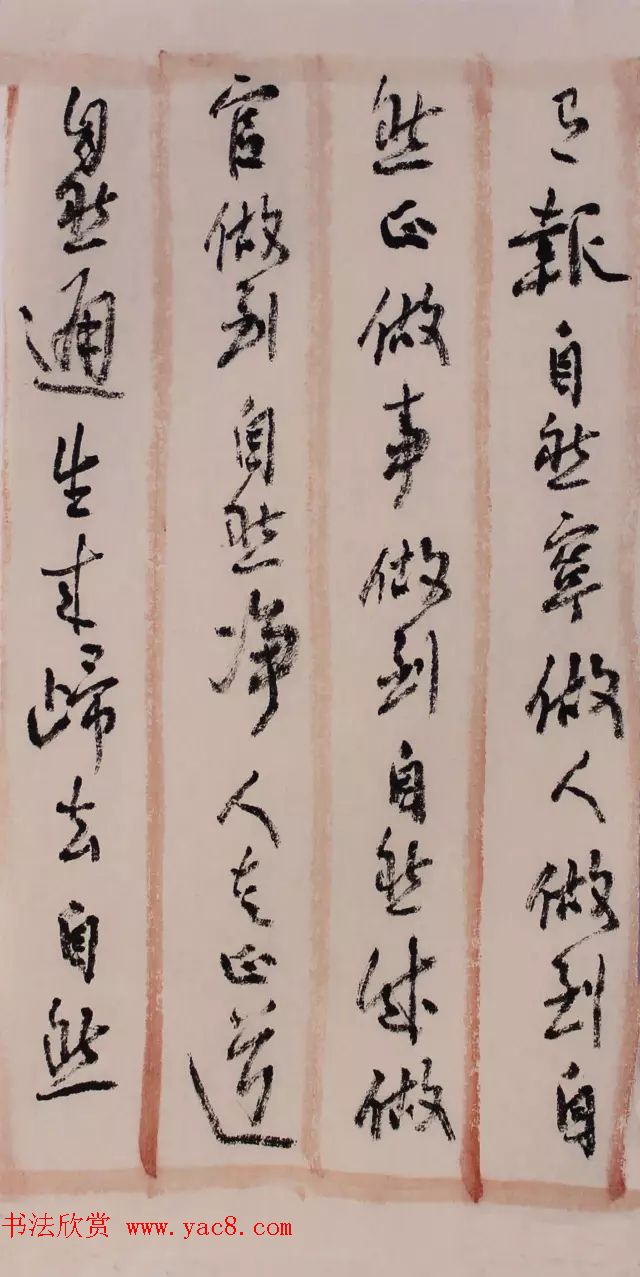 報自然寧做人做到自
然正做事做到自然成做
官做到自然净人走正道
自然通生来歸去自然
书法欣赏 www.yac8.com